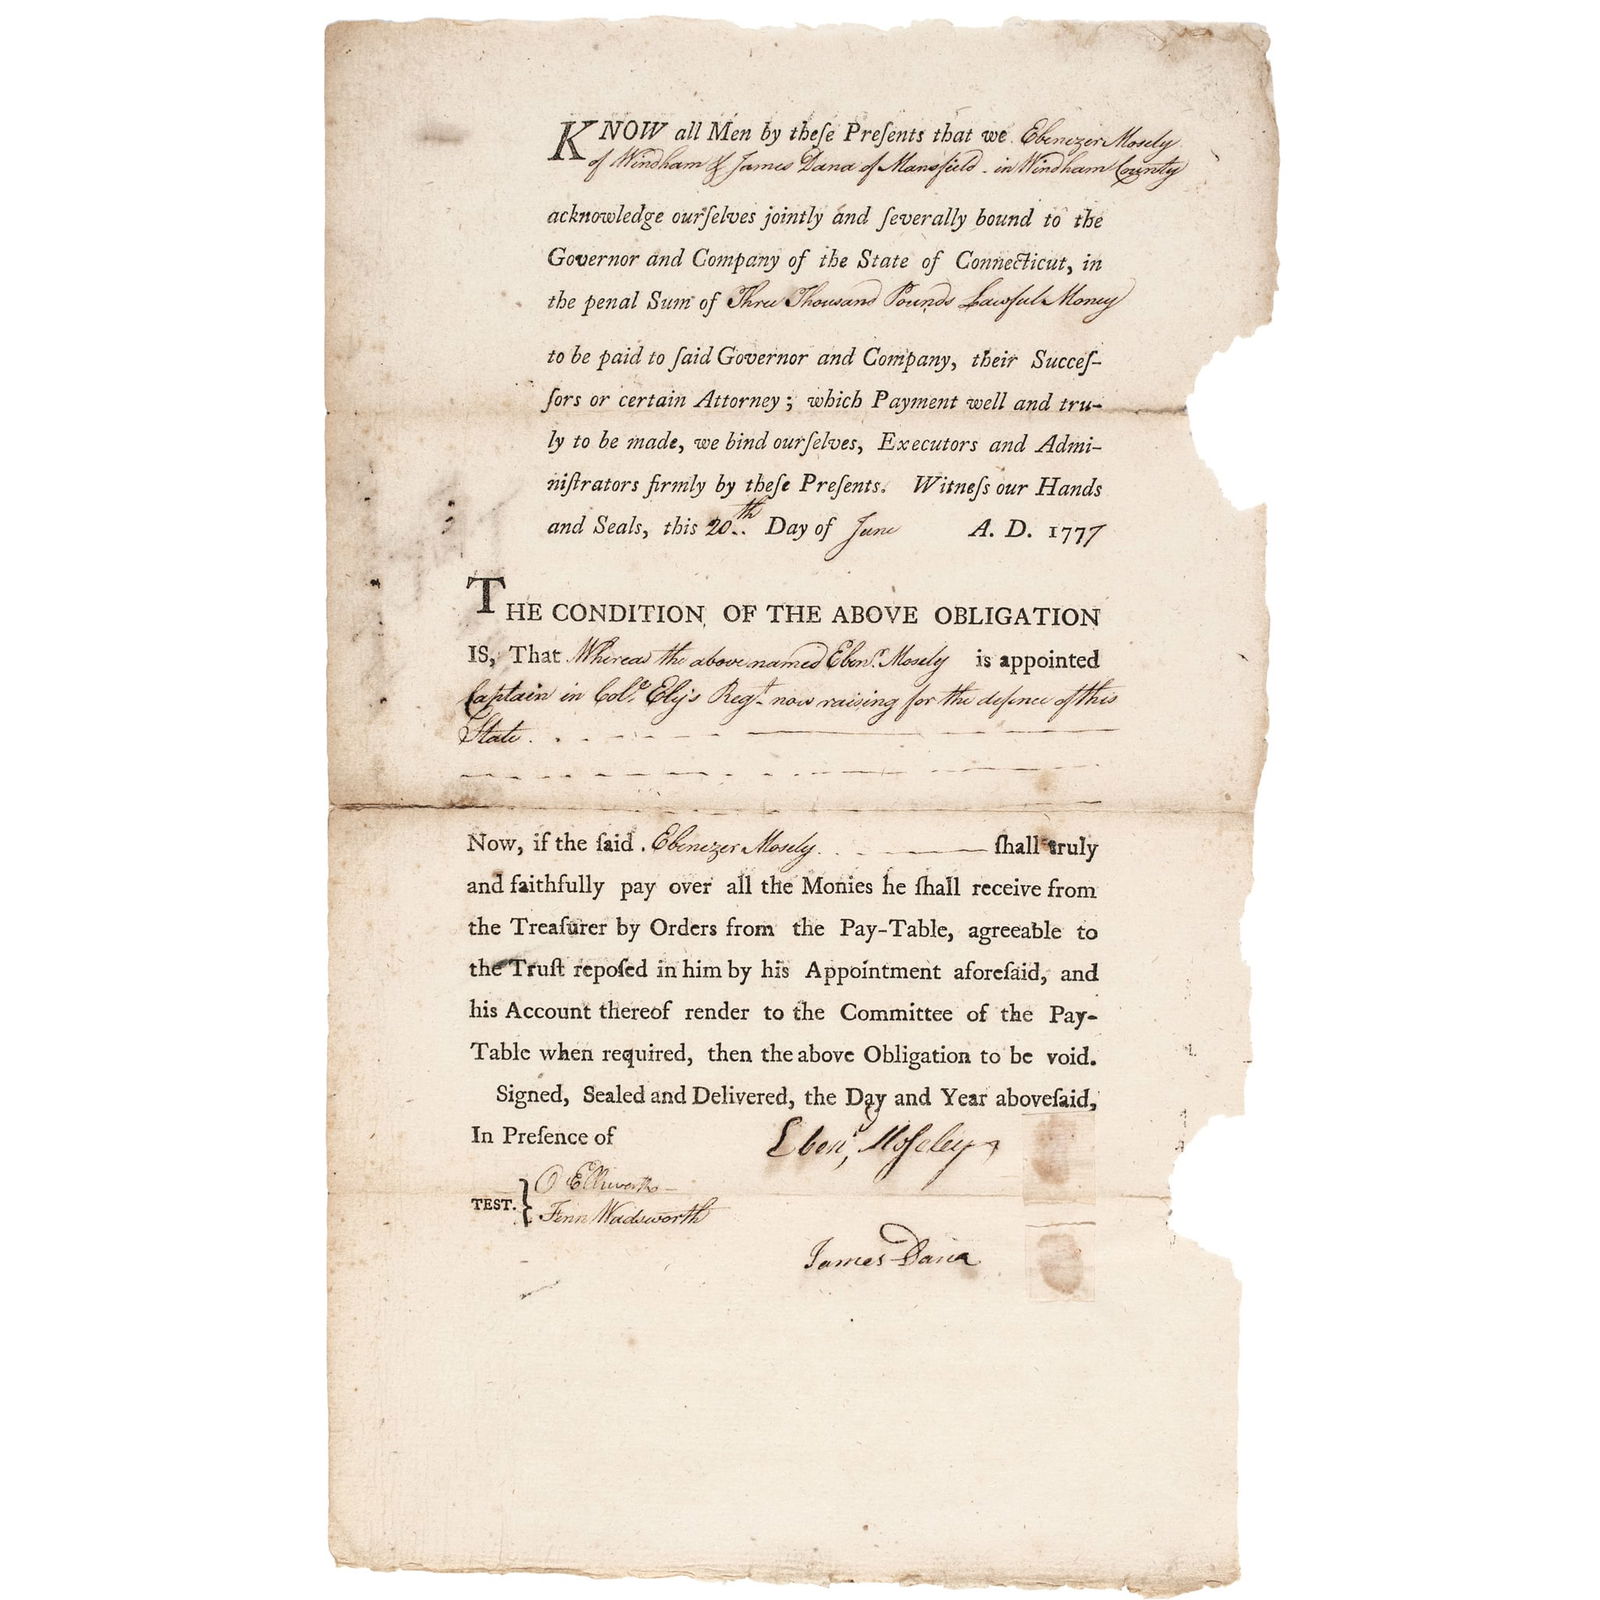 KNOW all Men by theſe Preſents that we Ebenezer Mosely
of Windham & James Dana of Mansfield in Windham County
acknowledge ourſelves jointly and ſeverally bound to the
Governor and Company of the State of Connecticut, in
the penal Sum of Three Thousand Pounds Lawful Money
to be paid to ſaid Governor and Company, their Succeſ-
ſors or certain Attorney; which Payment well and tru-
ly to be made, we bind ourſelves, Executors and Admi-
niſtrators firmly by theſe Preſents. Witneſs our Hands
and Seals, this 20th Day of June A. D. 1777
THE CONDITION OF THE ABOVE OBLIGATION
IS, That Whereas the above named Ebenr. Mosely is appointed
Captain in Colo. Ely's Regt. now raising for the defence of this
State.
Now, if the ſaid Ebenezer Mosely ſhall truly
and faithfully pay over all the Monies he ſhall receive from
the Treaſurer by Orders from the Pay-Table, agreeable to
the Truſt repoſed in him by his Appointment aforeſaid, and
his Account thereof render to the Committee of the Pay-
Table when required, then the above Obligation to be void.
Signed, Sealed and Delivered, the Day and Year aboveſaid,
In Preſence of
Ebenr, Moſeley
TEST. } O Ellsworth
Fenn Wadsworth
James Dana